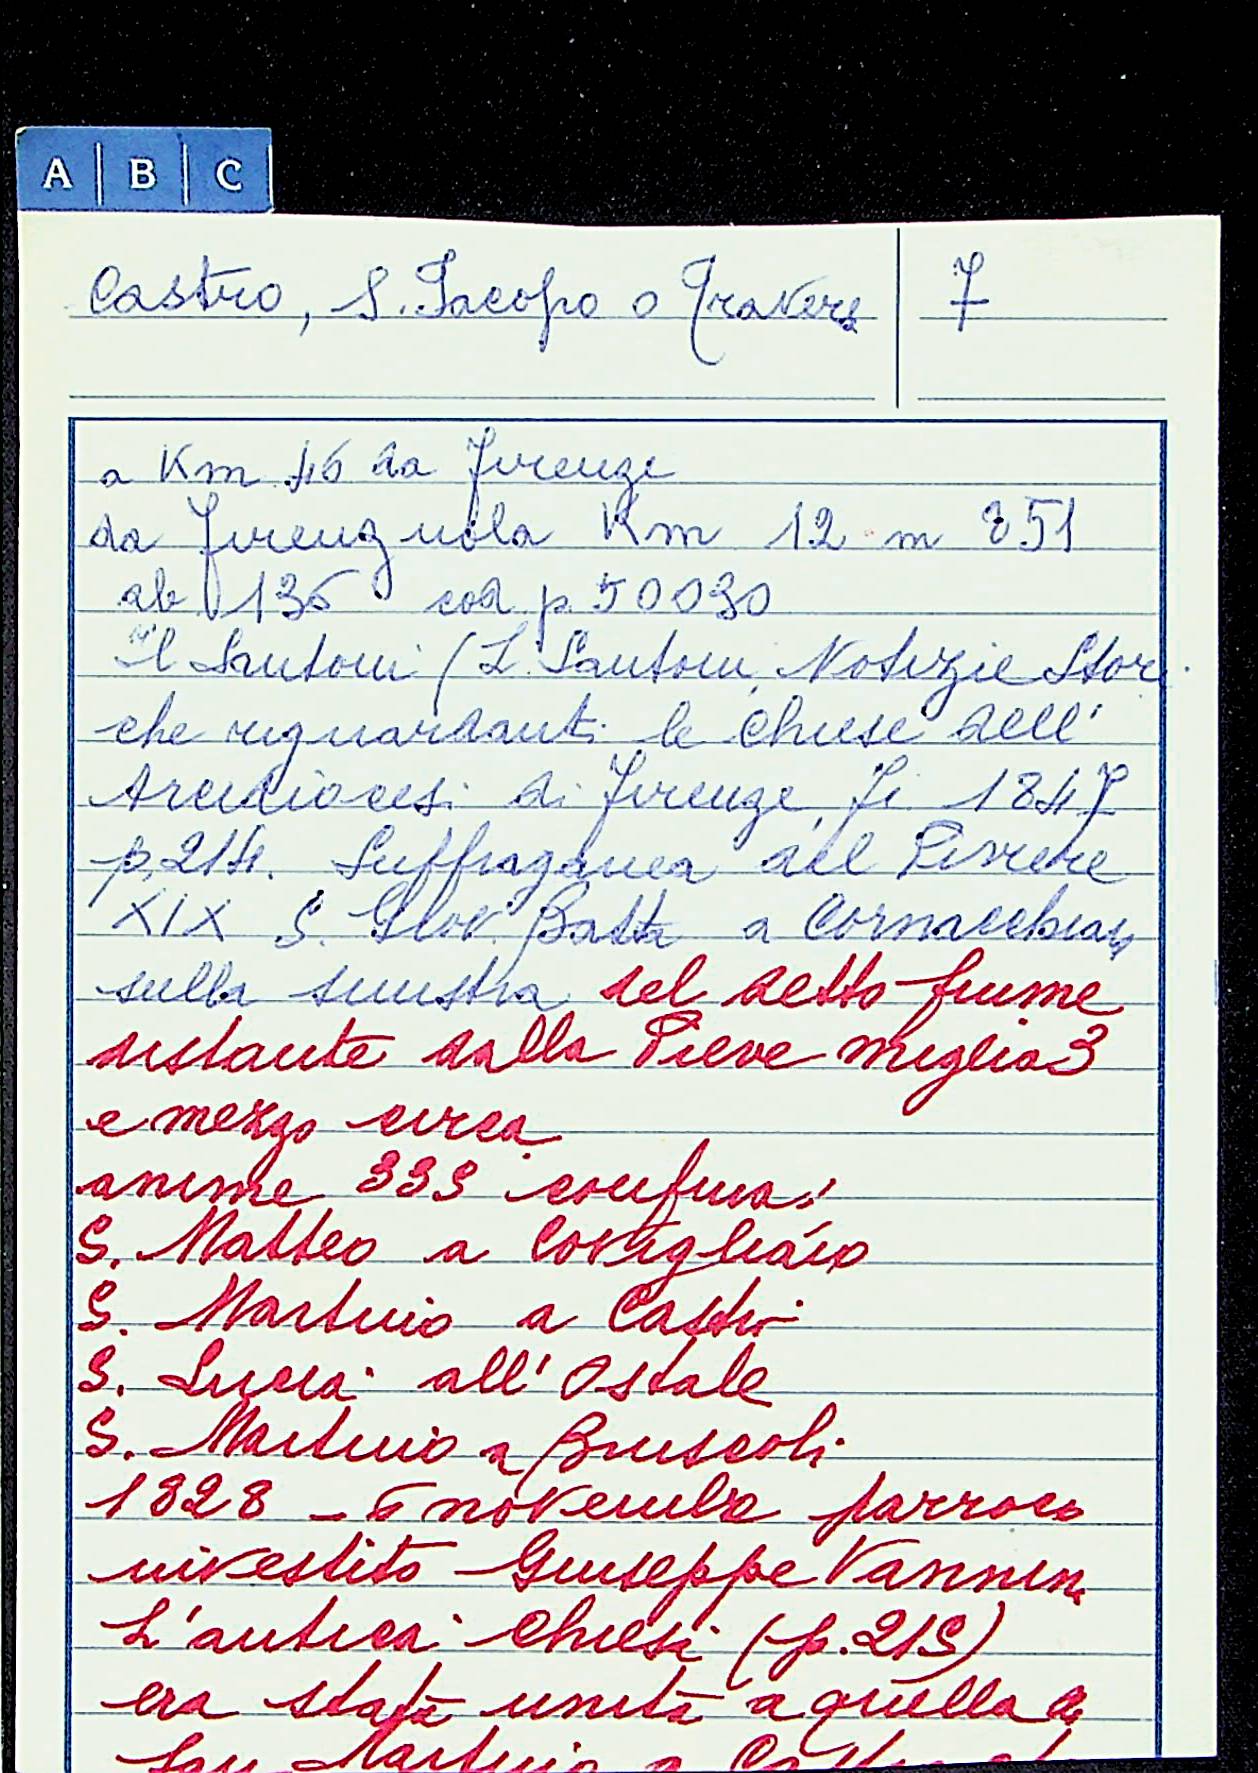 A B C
Castro, S. Jacopo o Travers 7
a Km 46 da Firenze
da Firenzuola Km 12 m 851
ab 136 cod p 50030
Il Santoni (L. Santoni, Notizie Stori
che riguardanti le chiese dell'
Arcidiocesi di Firenze, Fi 1847
p. 214. Suffraganea del Piviere
XIX S. Giov. Batta a Cornacchiaia
sulla sinistra del detto fiume
distante dalla Pieve miglia 3
e mezzo circa
anime 339 confina:
S. Matteo a Covigliaio
S. Martino a Castro
S. Lucia all'Ostale
S. Martino a Bruscoli
1828 - 6 novembre parroco
investito Giuseppe Vannini
L'antica chiesa (p. 219)
era stata unita a quella di
San Martino a